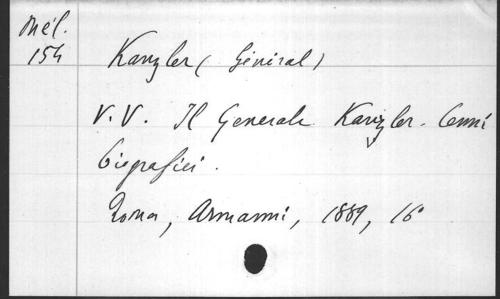 Mél.
154
Kanzler (Général)
V.V. Il Generale Kanzler. Cenni
biografici.
Roma, Armanni, 1889, 16°